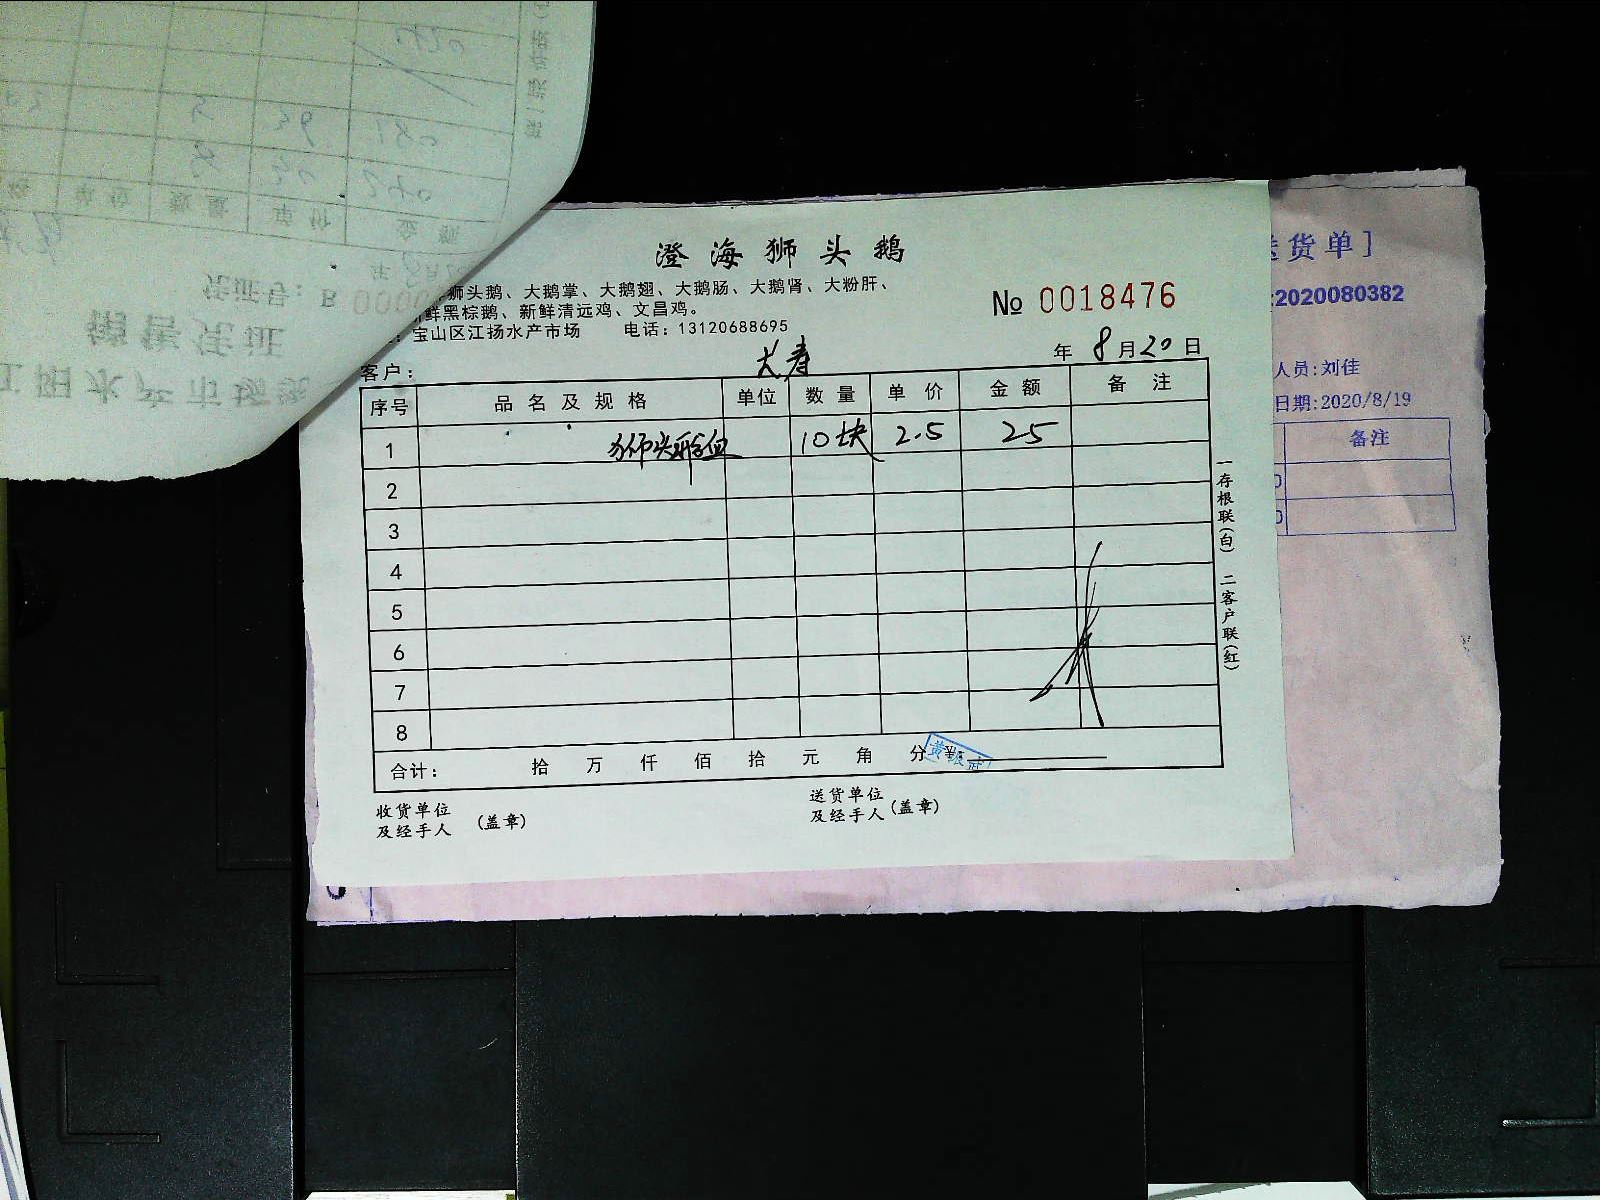 澄海狮头鹅
狮头鹅、大鹅掌、大鹅翅、大鹅肠、大鹅肾、大粉肝、
鲜黑棕鹅、新鲜清远鸡、文昌鸡。
宝山区江扬水产市场 电话：13120688695
№ 0018476
客户： 大寿 年 8 月 20 日
序号 品名及规格 单位 数量 单价 金额 备注
1 狮头鹅血 10块 2.5 25
2
3
4
5
6
7
8
合计： 拾 万 仟 佰 拾 元 角 分 ¥:
收货单位
及经手人 (盖章)
送货单位
及经手人 (盖章)
一存根联(白) 二客户联(红)
送货单]
:2020080382
人员:刘佳
日期:2020/8/19
备注
江阳水产市场
销售凭证
凭证号：B 0000
单位 数量 单价 金额